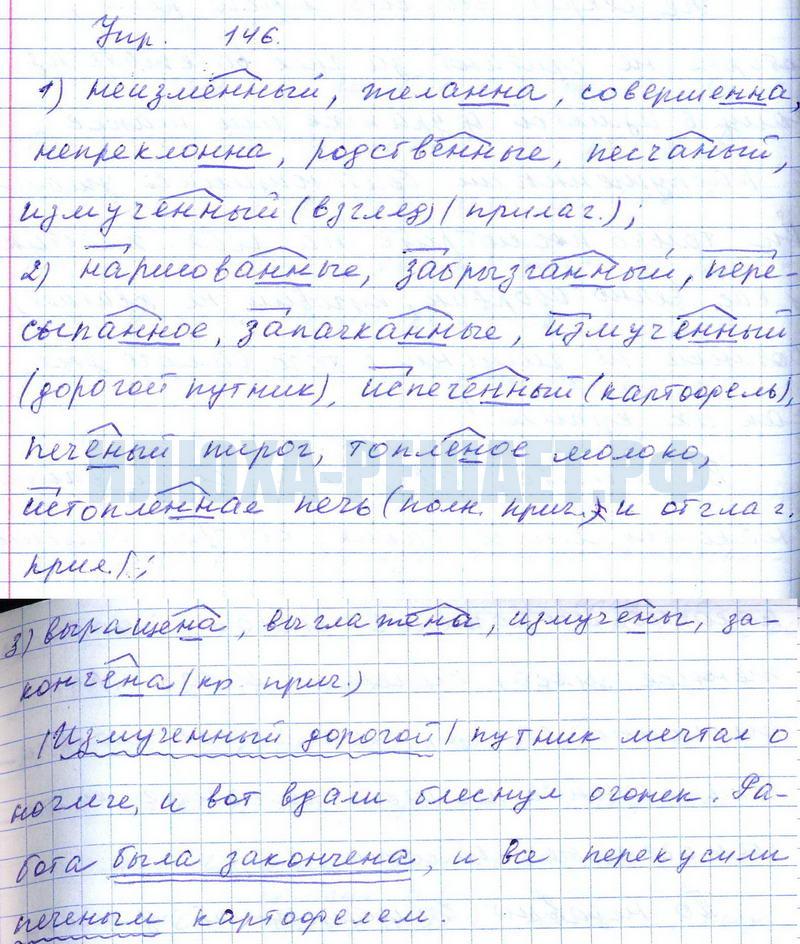 Упр. 146.
1) неизменный, желанна, совершенна,
непреклонна, родственные, песчаный,
измученный (взгляд) (прилаг.);
2) нарисованные, забрызганный, пере-
сыпанное, запачканные, измученный
(дорогой путник), испеченный (картофель),
печеный пирог, топленое молоко,
истопленная печь (полн. прич.) и отглаг.
прил.);
ИЛЮХА-РЕШАЕТ.РФ
3) выращена, выглажена, измучены, за-
кончена (кр. прич.)
|Измученный дорогой| путник мечтал о
ночлеге, и вот вдали блеснул огонек. Ра-
бота была закончена, и все перекусили
печеным картофелем.